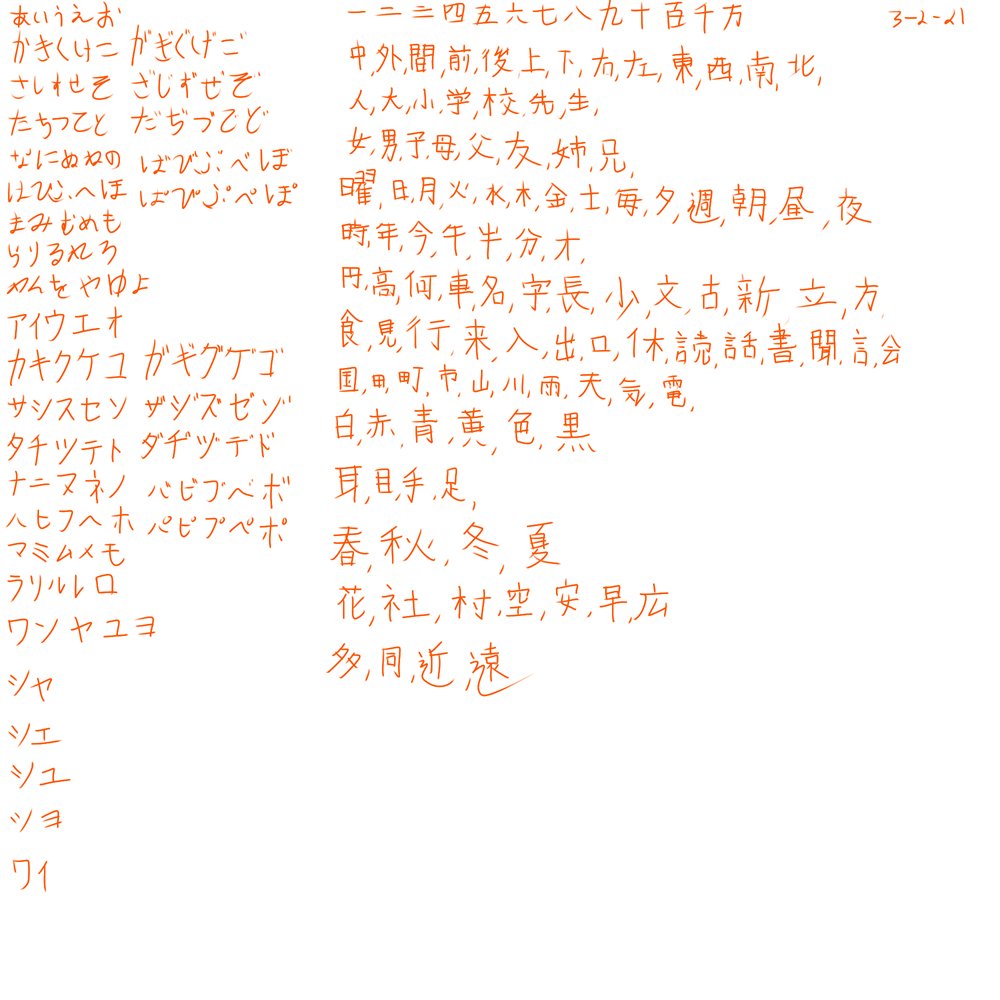 あいうえお
かきくけこ がぎぐげご
さしすせそ ざじずぜぞ
たちつてと だぢづでど
なにぬねの ばびぶべぼ
はひふへほ ぱびぷぺぽ
まみむめも
らりるれろ
わんを やゆよ
アイウエオ
カキクケコ ガギグゲゴ
サシスセソ ザジズゼゾ
タチツテト ダヂヅデド
ナニヌネノ バビブベボ
ハヒフヘホ パピプペポ
マミムメモ
ラリルレロ
ワンヤユヨ
シャ
シェ
シュ
ツヨ
ワイ
一二三四五六七八九十百千方
3-2-21
中,外,間,前,後,上,下,右,左,東,西,南,北,
人,大,小,学,校,先,生,
女,男,子,母,父,友,姉,兄,
曜,日,月,火,水,木,金,土,毎,夕,週,朝,昼,夜
時,年,今,午,半,分,才,
円,高,何,車,名,字,長,少,文,古,新 立,方
食,見,行,来,入,出,口,休,読,話,書,聞,言,会
国,田,町,市,山,川,雨,天,気,電,
白,赤,青,黄,色,黒
耳,目,手,足,
春,秋,冬,夏
花,社,村,空,安,早,広
多,同,近,遠